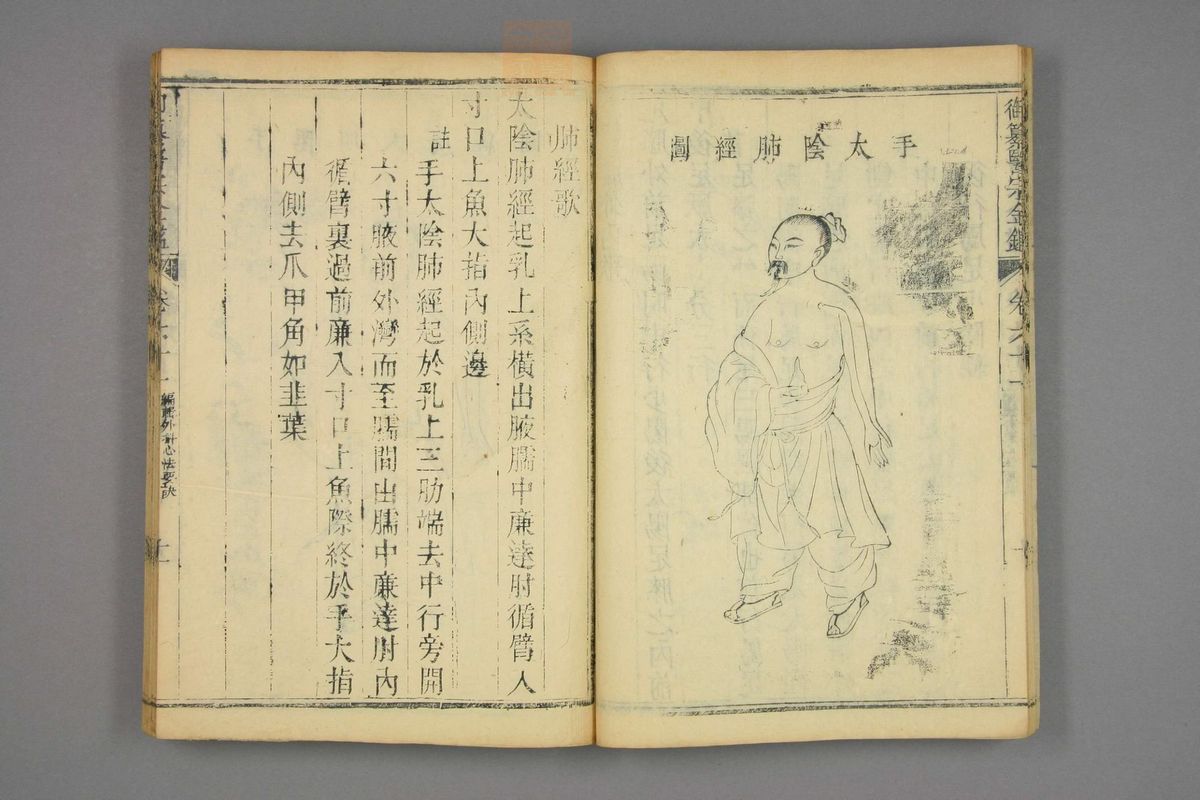 御纂醫宗金鑑
卷六十一
手太陰肺經圖
肺經歌
太陰肺經起乳上系橫出腋臑中廉達肘循臂入
寸口上魚大指內側邊
註手太陰肺經起於乳上三肋端去中行旁開
六寸腋前外灣而至臑間出臑中廉達肘內
循臂裏過前廉入寸口上魚際終於手大指
內側去爪甲角如韭葉
卷六十一
編輯外科心法要訣
十一